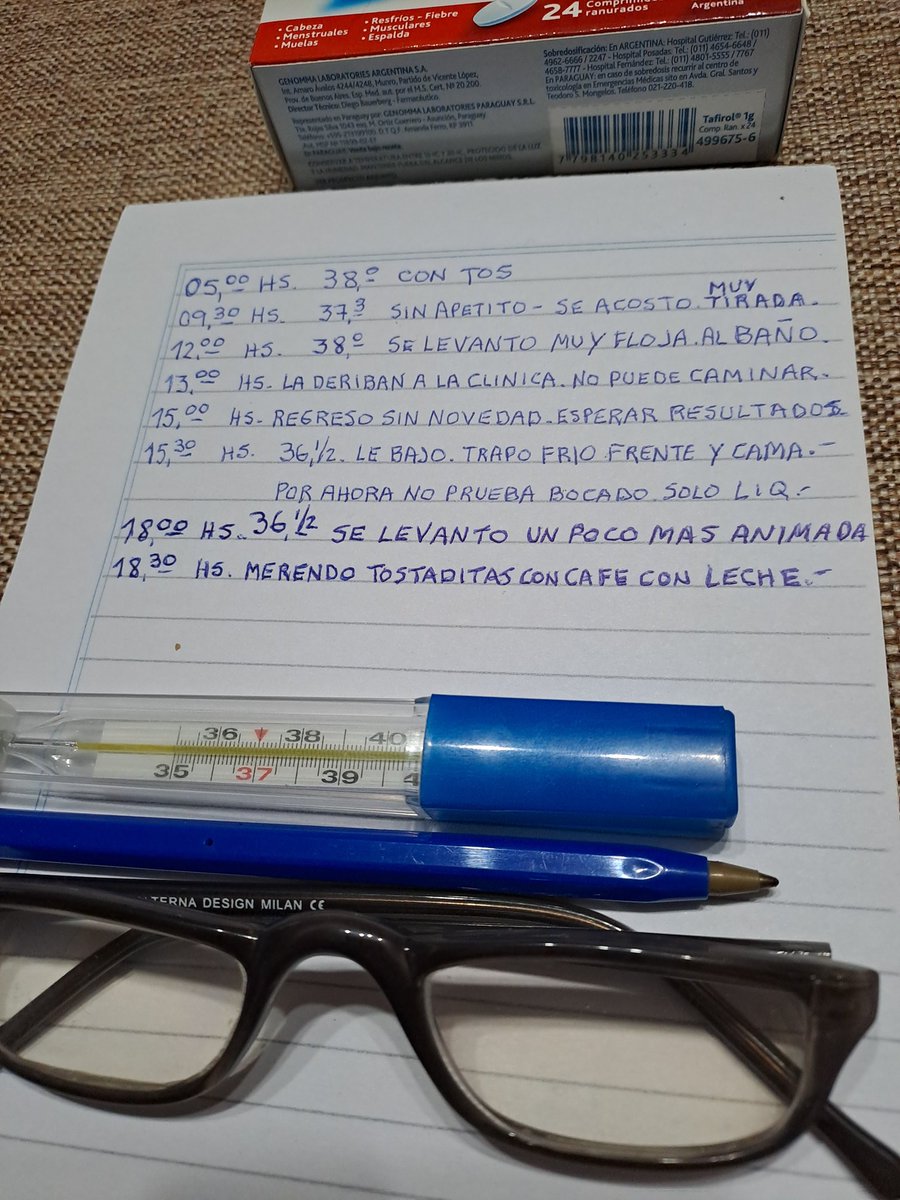 • Cabeza
• Menstruales
• Muelas
• Resfríos - Fiebre
• Musculares
• Espalda
24 Comprimidos
ranurados
Argentina
GENOMMA LABORATORIES ARGENTINA S.A.
Int. Amaro Ávalos 4244/4248, Munro, Partido de Vicente López,
Prov. de Buenos Aires. Esp. Med. aut. por el M.S. Cert. Nº 20.200
Director Técnico: Diego Bauerberg - Farmacéutico
Representado en Paraguay por: GENOMMA LABORATORIES PARAGUAY S.R.L.
Sobredosificación: En ARGENTINA: Hospital Gutiérrez: Tel.: (011)
4962-6666 / 2247 - Hospital Posadas: Tel.: (011) 4654-6648 /
4658-7777 - Hospital Fernández: Tel.: (011) 4801-5555 / 7767
En PARAGUAY: en caso de sobredosis recurrir al centro de
toxicología en Emergencias Médicas sito en Avda. Gral. Santos y
Teodoro S. Mongelos. Teléfono 021-220-418.
Tafirol® 1g
Comp. Ran. x 24
499675-6
7 798140 253334
05,00 HS. 38,º CON TOS
09,30 HS. 37,3 SIN APETITO - SE ACOSTO MUY TIRADA.
12,00 HS. 38,º SE LEVANTO MUY FLOJA. AL BAÑO.
13,00 HS. LA DERIBAN A LA CLINICA. NO PUEDE CAMINAR.-
15,00 HS. REGRESO SIN NOVEDAD. ESPERAR RESULTADOS
15,30 HS. 36,1/2. LE BAJO. TRAPO FRIO FRENTE Y CAMA.-
POR AHORA NO PRUEBA BOCADO. SOLO LIQ.-
18,00 HS. 36,1/2 SE LEVANTO UN POCO MAS ANIMADA
18,30 HS. MERENDO TOSTADITAS CON CAFE CON LECHE.-
36 38 40
35 37 39
TERNA DESIGN MILAN CE